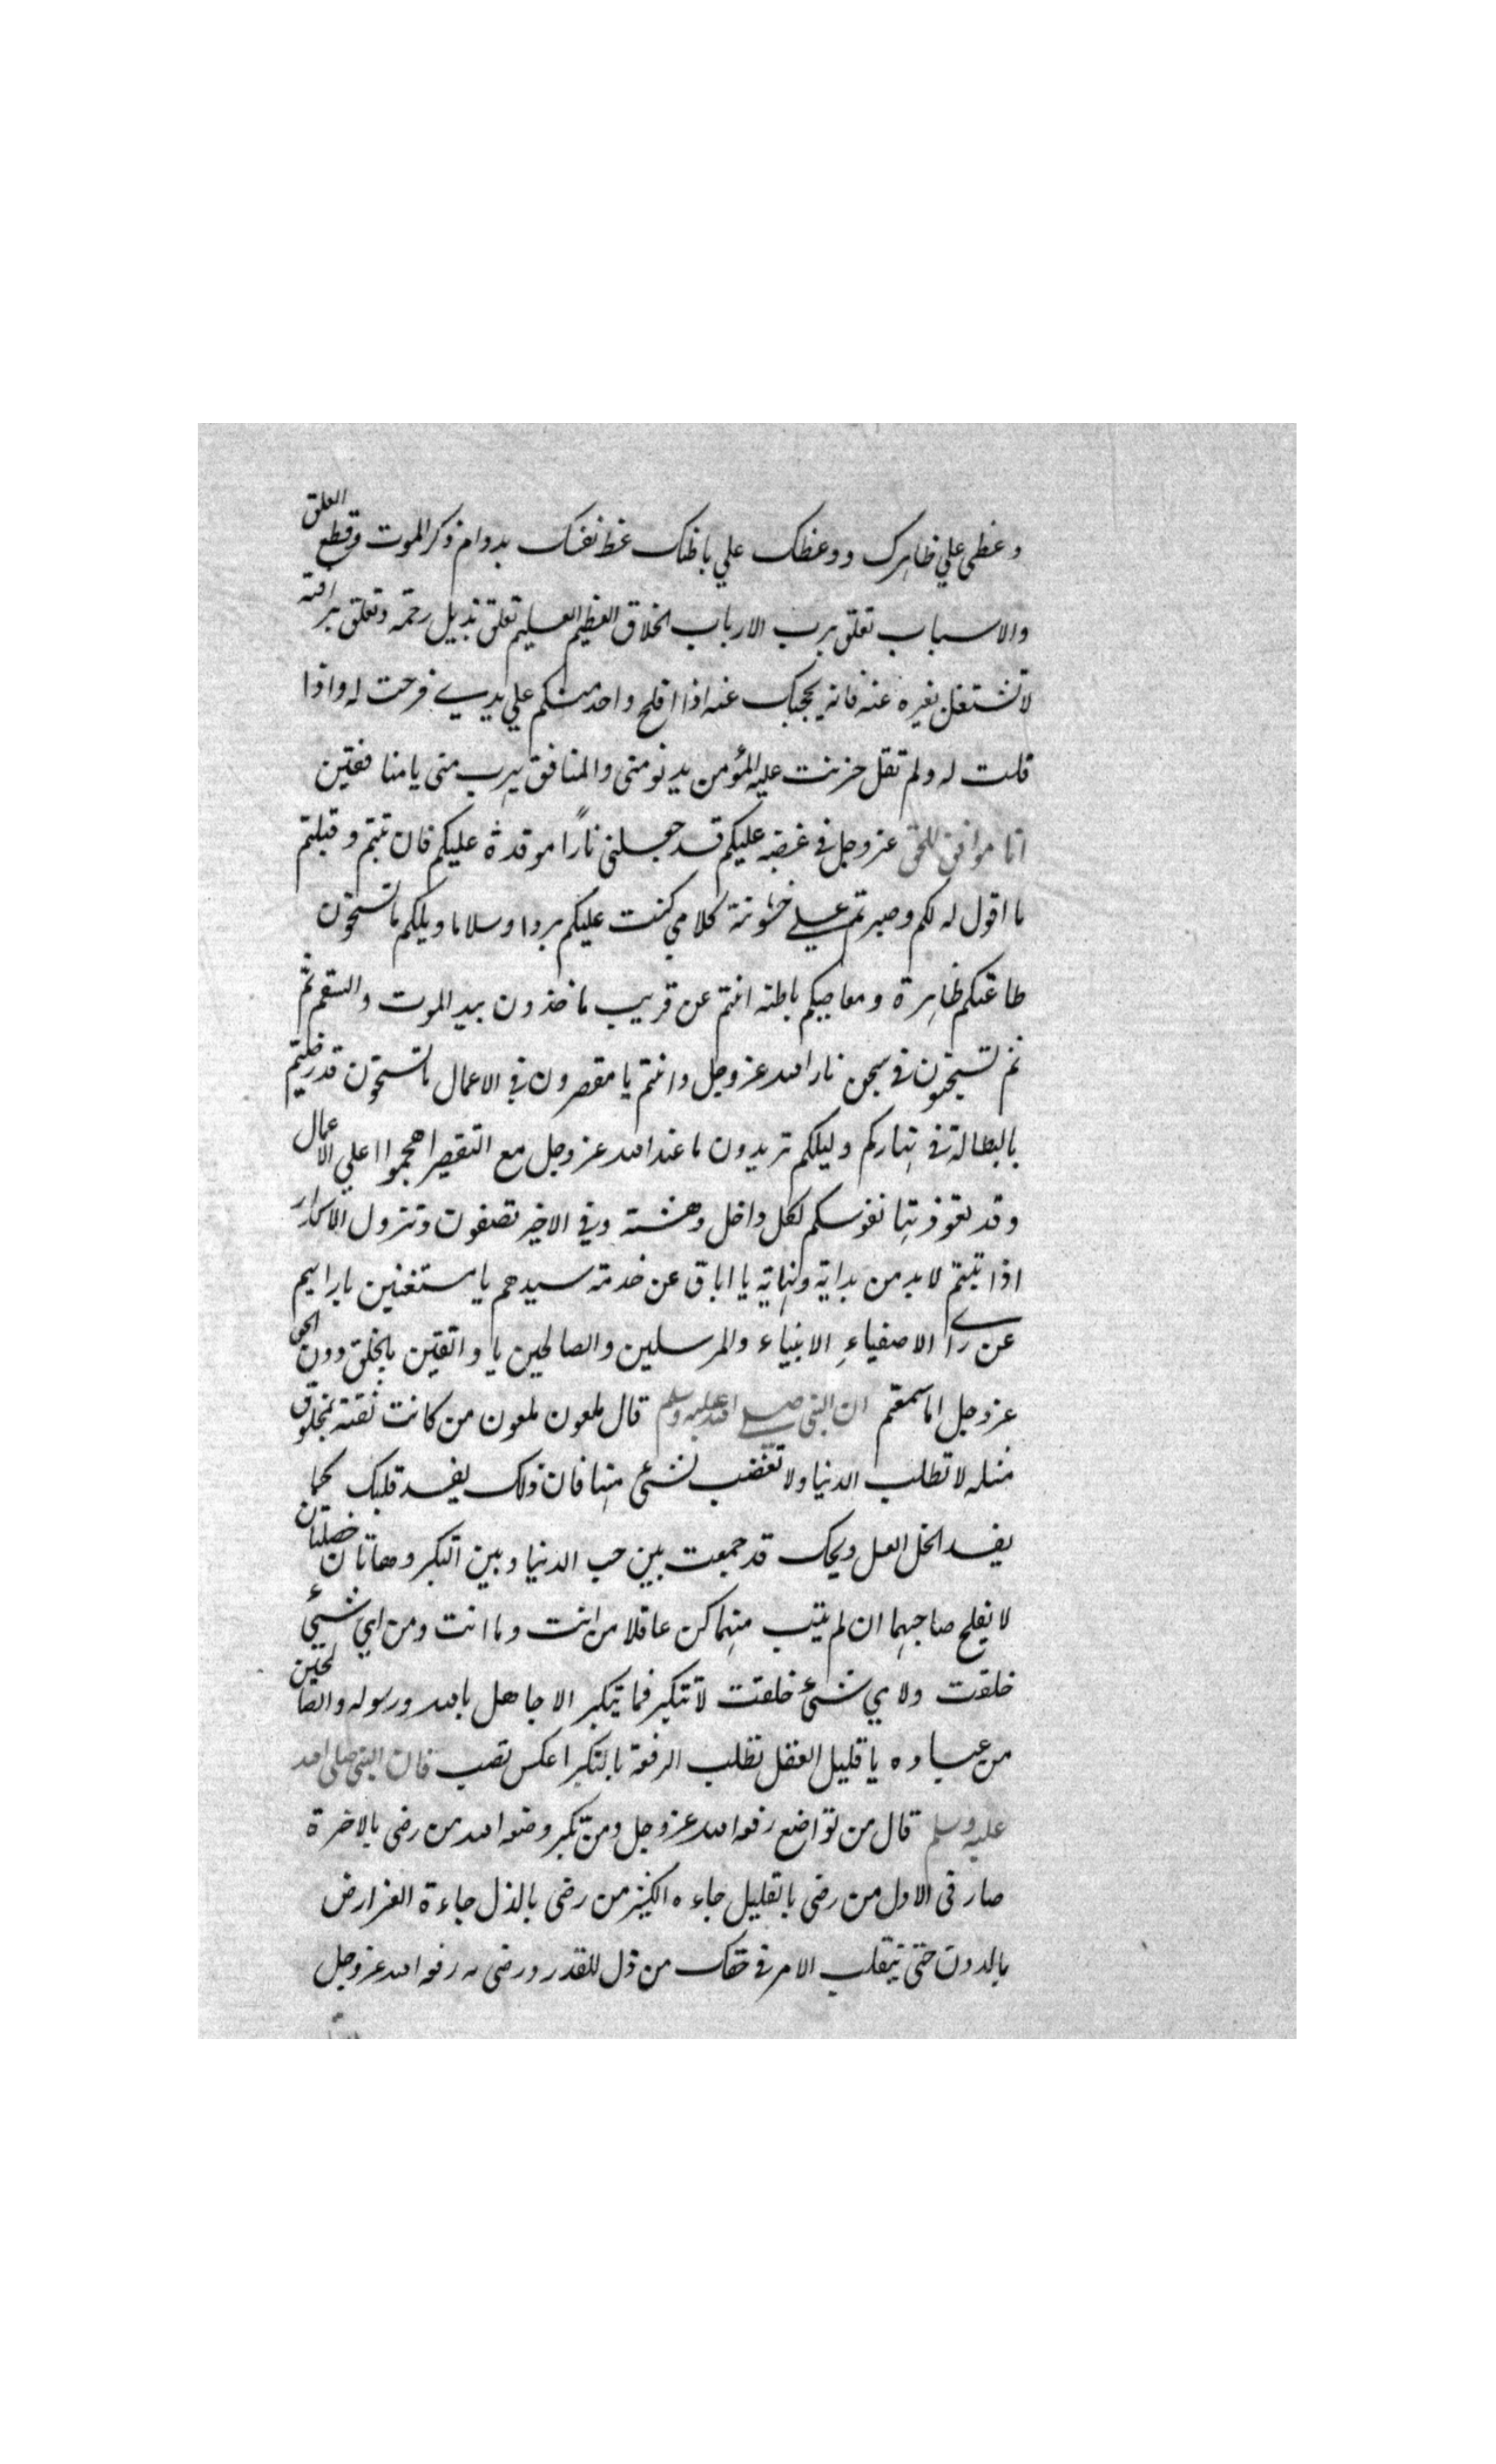 وعظى علي ظاهرك ووعظك علي باطنك عظ نفسك بدوام ذكر الموت وقطع العلق
والاسباب تعلق برب الارباب الخلاق العظيم العليم تعلق بذيل رحمته وتعلق برافته
لا تشتغل بغيره عنه فانه يحجبك عنه اذا افلح واحد منكم علي يدي فرحت له واذا
قلت له ولم تقل حزنت عليه المؤمن يدنو منى والمنافق يهرب منى يا منافقين
انا موافق للحق عز وجل في غضبه عليكم قد جعلنى نارًا موقدة عليكم فان تبتم وقبلتم
ما اقول له لكم وصبرتم علي خشونة كلامي كنت عليكم بردا وسلاما ويلكم ما تستحون
طاعتكم ظاهرة ومعاصيكم باطنه انتم عن قريب ماخذون بيد الموت والسقم ثم
ثم تسجنون في سجن نار الله عز وجل وانتم يا مقصرون في الاعمال ما تستحون قد رضيتم
بالبطالة في نهاركم وليلكم تريدون ما عند الله عز وجل مع التقصير اهجموا علي الاعمال
وقد تعوذ بها نفوسكم لكل داخل دهشته وفي الاخير تصفون وتزول الاكدار
اذا تبتم لابد من بداية ونهاية يا اباق عن خدمة سيدهم يا مستغنين بارائهم
عن راي الاصفياء الانبياء والمرسلين والصالحين يا واثقين بالخلق دون الحق
عز وجل اما سمعتم ان النبى صلي الله عليه وسلم قال ملعون ملعون من كانت ثقته بمخلوق
مثله لا تطلب الدنيا ولا تغضب لشئ منها فان ذلك يفسد قلبك كما
يفسد الخل العسل ويحك قد جمعت بين حب الدنيا وبين التكبر وهاتان خصلتان
لا يفلح صاحبهما ان لم يتب منهما كن عاقلا من انت وما انت ومن اي شئ
خلقت ولاي شئ خلقت لا تتكبر فما يتكبر الا جاهل بالله ورسوله والصالحين
من عباده يا قليل العقل تطلب الرفعة بالتكبر اعكس تصب فان النبى صلى الله
عليه وسلم قال من تواضع رفعه الله عز وجل ومن تكبر وضعه الله من رضى بالاخرة
صار في الاول من رضى بالقليل جاءه الكثير من رضى بالذل جاءة العز ارض
بالدون حتى ينقلب الامر في حقك من ذل للقدر ورضى به رفعه الله عز وجل